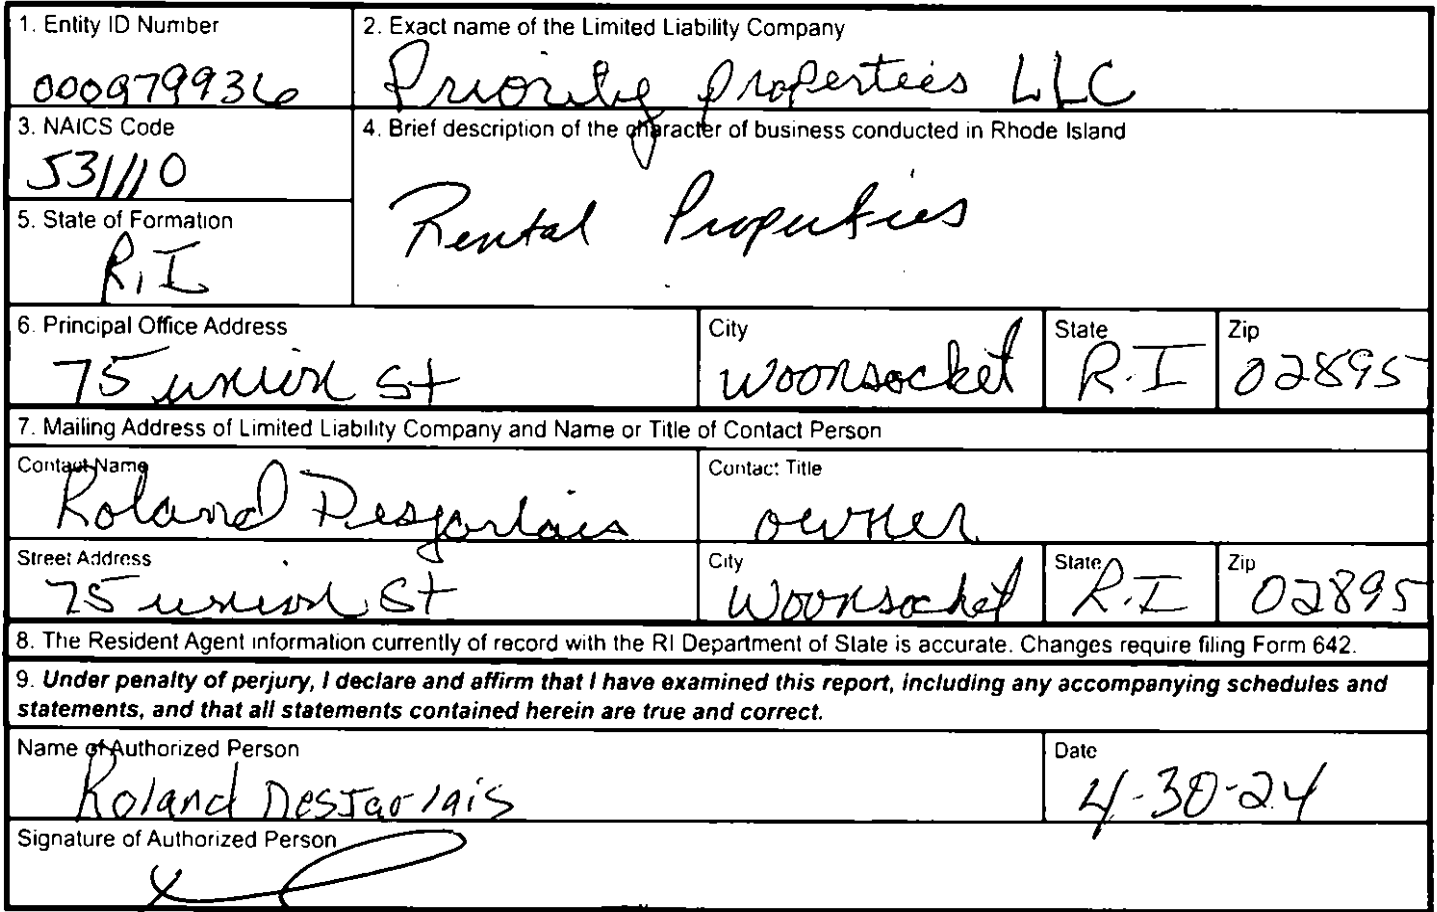 1. Entity ID Number
000979936
2. Exact name of the Limited Liability Company
Priority Properties LLC
3. NAICS Code
531110
4. Brief description of the character of business conducted in Rhode Island
Rental Properties
5. State of Formation
R.I
6. Principal Office Address
75 union St
City
Woonsocket
State
R.I
Zip
02895
7. Mailing Address of Limited Liability Company and Name or Title of Contact Person
Contact Name
Roland Desjarlais
Contact Title
owner
Street Address
75 union St
City
Woonsocket
State
R.I
Zip
02895
8. The Resident Agent information currently of record with the RI Department of State is accurate. Changes require filing Form 642.
9. Under penalty of perjury, I declare and affirm that I have examined this report, including any accompanying schedules and
statements, and that all statements contained herein are true and correct.
Name of Authorized Person
Roland DesJarlais
Date
4-30-24
Signature of Authorized Person